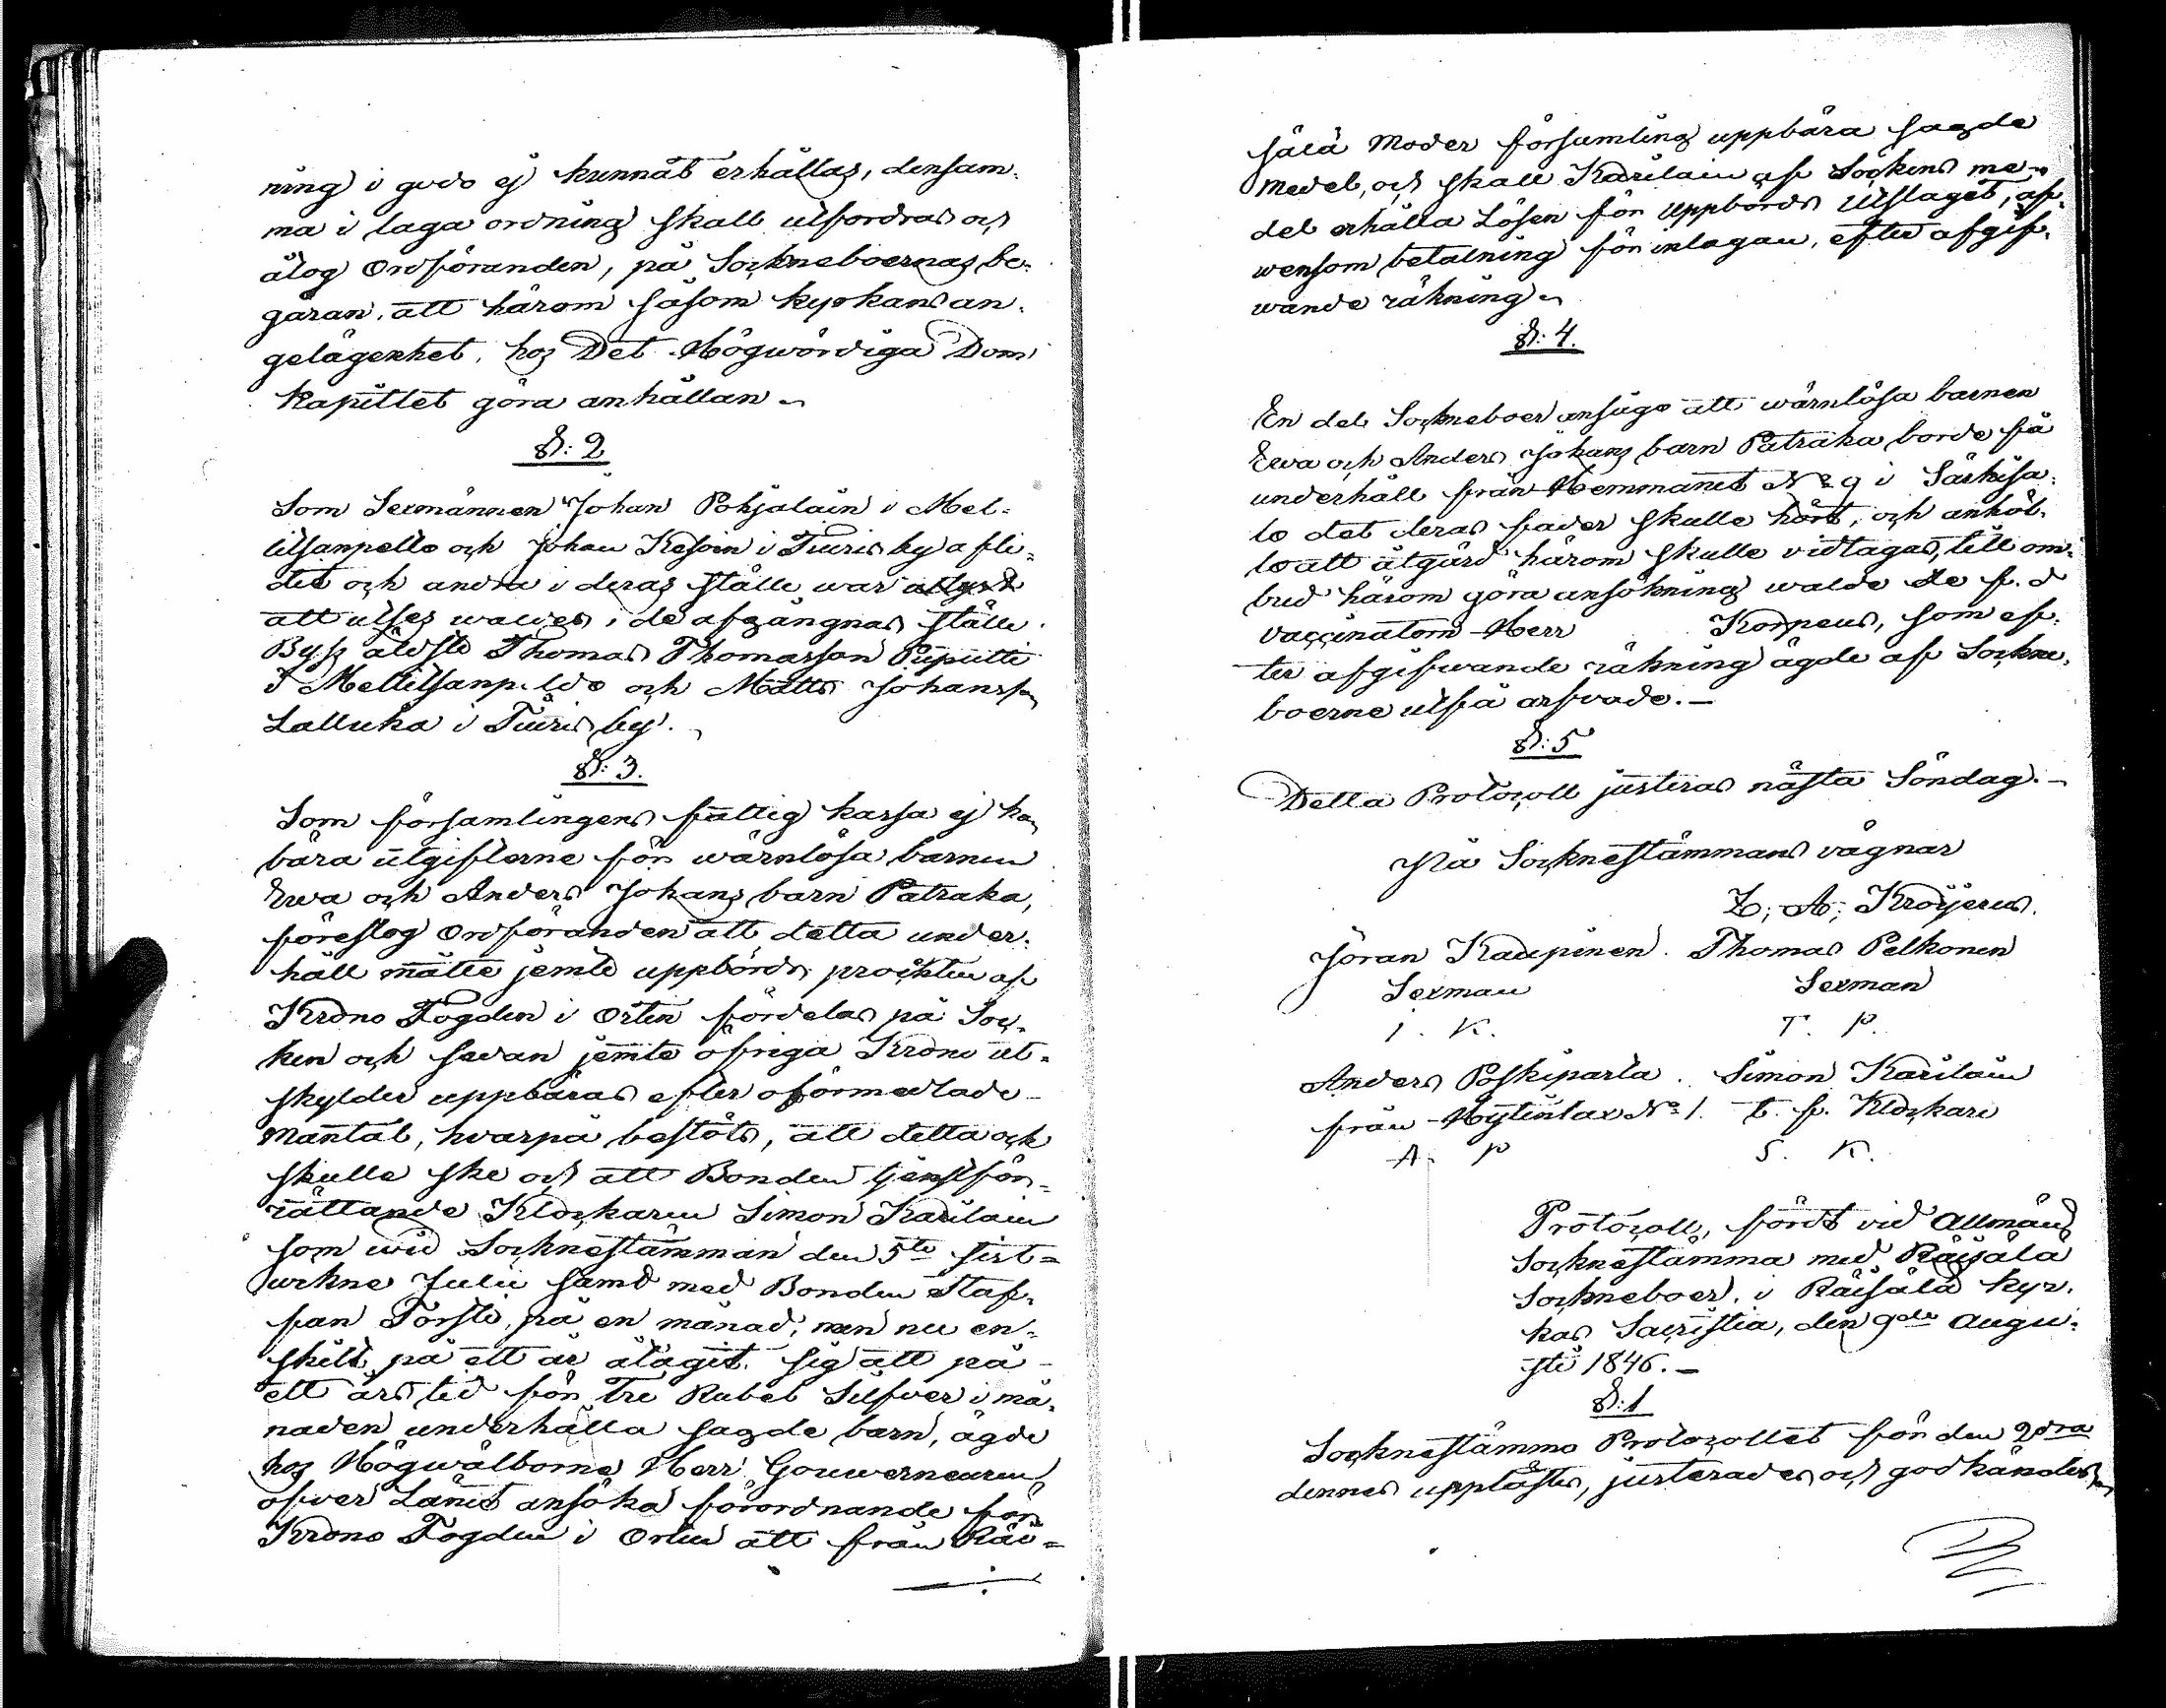 ning i godo ej kunnat erhållas, densam-
ma i laga ordning skall utfordras och
ålog Ordföranden, på Sockneboernas be-
gäran, att härom såsom kyrkans an-
gelägenhet, hos Det Högwördiga Dom
Kapittlet göra anhållan.
§: 2
Som Sexmännen Johan Pohjalain i Mel-
litsanpello och Johan Kesoin i Tiuris by afli-
dit och andra i deras ställe war
att utses waldes, i de afgångnas ställe
By,s äldste Thomas Thomasson Puputti
i Mellitsanpeldo och Matts Johansson
Lalluka i Tiuris by.
§: 3.
Som församlingens fattig kassa ej kan
bära utgifterne för wärnlösa barnen
Ewa och Anders Johans barn Patraka,
föreslog Ordföranden att detta under-
håll måtte jemte uppbörds procten af
Krono Fogden i Orten fördelas på Soc-
ken och sedan jemte öfriga Krono ut-
skylder uppbäras efter oförmedlade
Mantal, hwarpå bestöts, att detta och
skulle ske och att Bonden tjenstför-
rättande Klockaren Simon Karilain
som wid Socknestämman den 5te sist-
wekne Julii samt med Bonden Staf-
fan Torste, på en månad, men nu en-
skilt på ett år åtagit sig att på
ett års tid för Tre Rubel Silfwer i må-
naden underhålla sagde barn, ägde
hos Högwälborne Herr Gouwerneuren
öfwer Länet ansöka förordnande för
Krono Fogden i Orten att från Räi-
sälä Moder församling uppbära sagde
Medel, och skall Karilain af Sockens me-
del erhålla Lösen för Uppbörds Utslaget, äf-
wensom betalning för inlagan, efter afgif-
wande räkning.
§: 4.
En del Sockneboer ansågo att wärnlösa barnen
Ewa och Anders Johans barn Patraka borde få
underhåll från Hemmanet № 9 i Särkisa-
lo det deras fader skulle hört, och anhöl-
lo att åtgärd härom skulle vidtagas, till om-
bud härom göra ansökning walde de f. d
vaccinatorn Herr Korpeus, som ef-
ter afgifwande räkning ägde af Sockne-
boerne utfå arfvode.
§: 5
Detta Protocoll justeras nästa Söndag.
På Socknestämmans vägnar
Z; A; Kröijerus.
Jöran Kaupinen. Thomas Pelkonen
Sexman Sexman
J. K. T. P.
Anders Poskiparta. Simon Karilain
från Hytinlax № 1. t. f. Klockare
A. P S. K.
Protocoll, fördt vid Allmän
Socknestämma med Räisälä
Sockneboer, i Räisälä Kyr-
kas Sacristia, den 9de Augu-
sti 1846.
§: 1
Socknestämmo Protocollet för den 2dra
dennes upplästes, justerades och godkändes